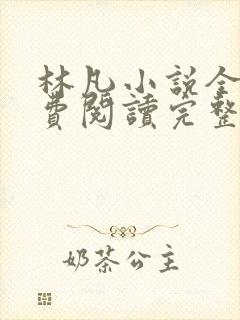 林凡小説全
費閱讀完整
奶茶公主